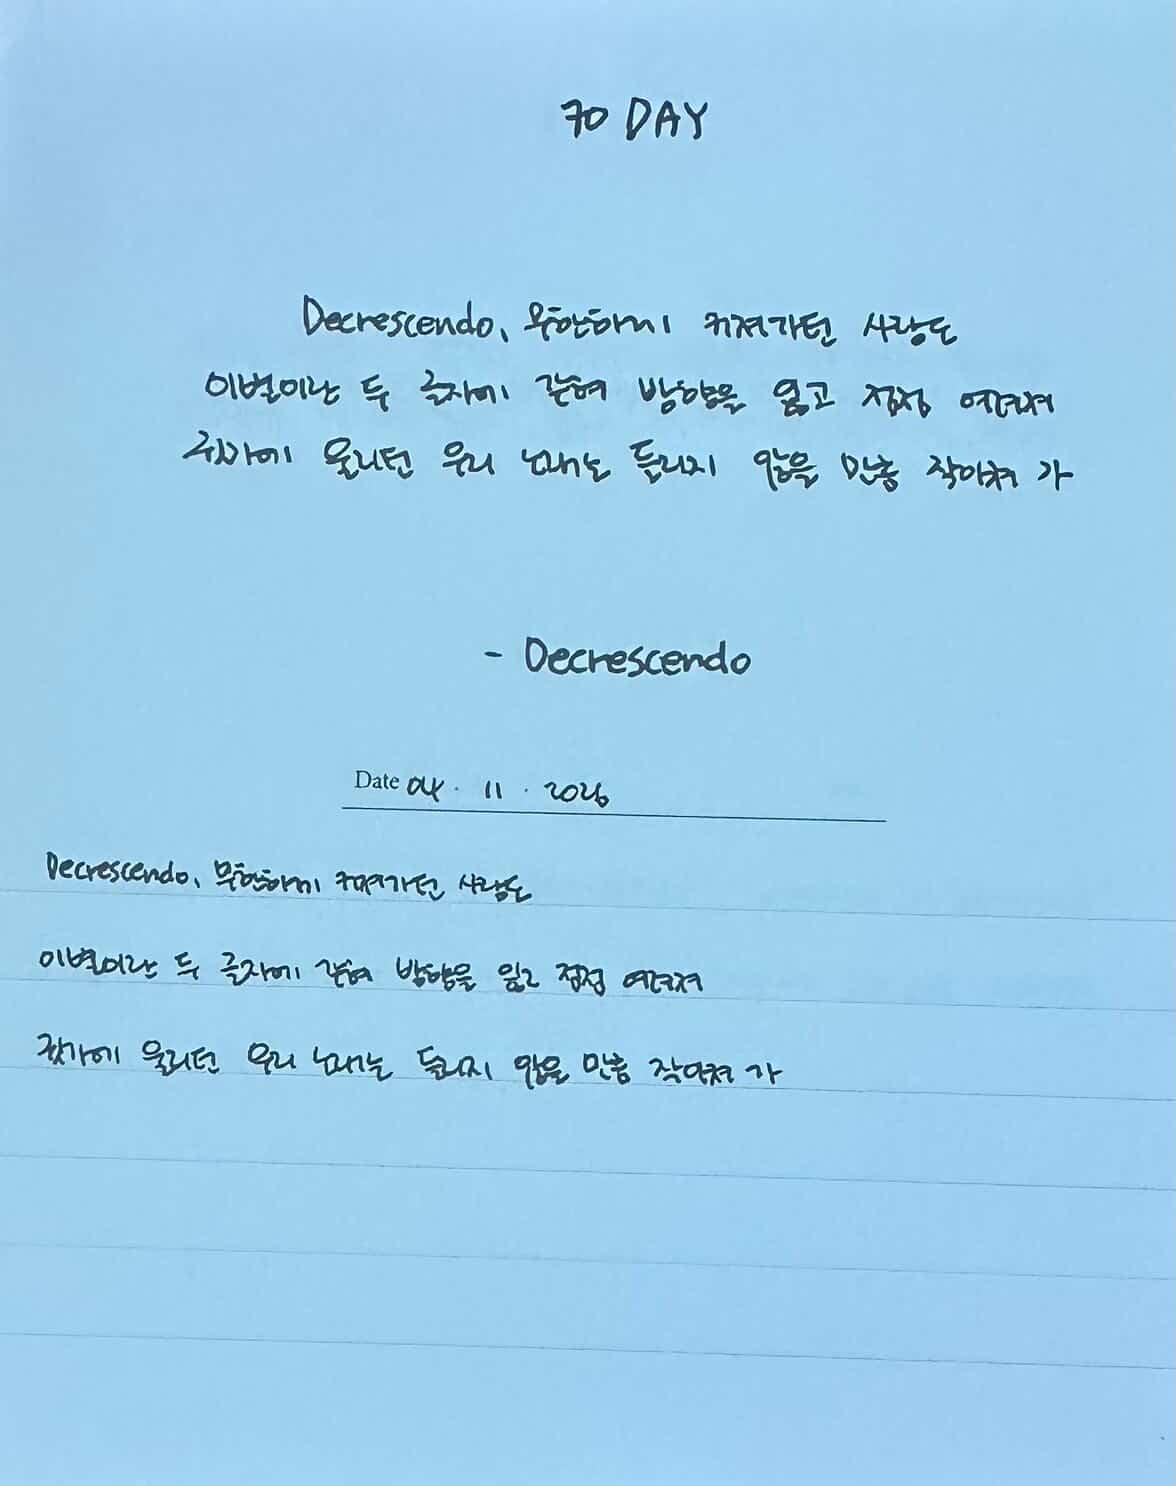 70 DAY
Decrescendo, 무한하게 커져가던 사랑도
이별이란 두 글자에 갇혀 방향을 잃고 점점 여려져
귓가에 울리던 우리 노래는 들리지 않을 만큼 작아져 가
- Decrescendo
Date 04 · 11 · 2026
Decrescendo, 무한하게 커져가던 사랑도
이별이란 두 글자에 갇혀 방향을 잃고 점점 여려져
귓가에 울리던 우리 노래는 들리지 않을 만큼 작아져 가